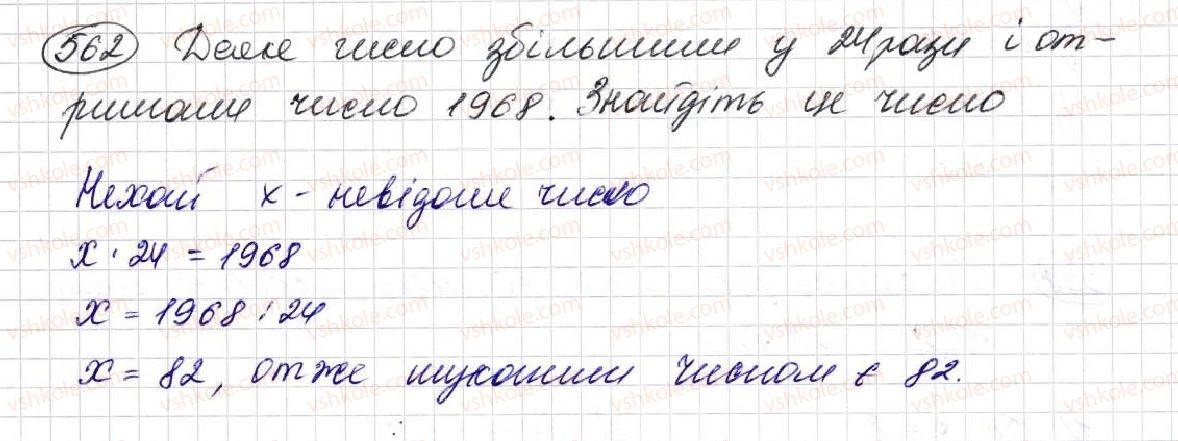 562 Деяке число збільшили у 24 рази і от-
римали число 1968. Знайдіть це число
Нехай x - невідоме число
x · 24 = 1968
x = 1968 : 24
x = 82, отже шуканим числом є 82.